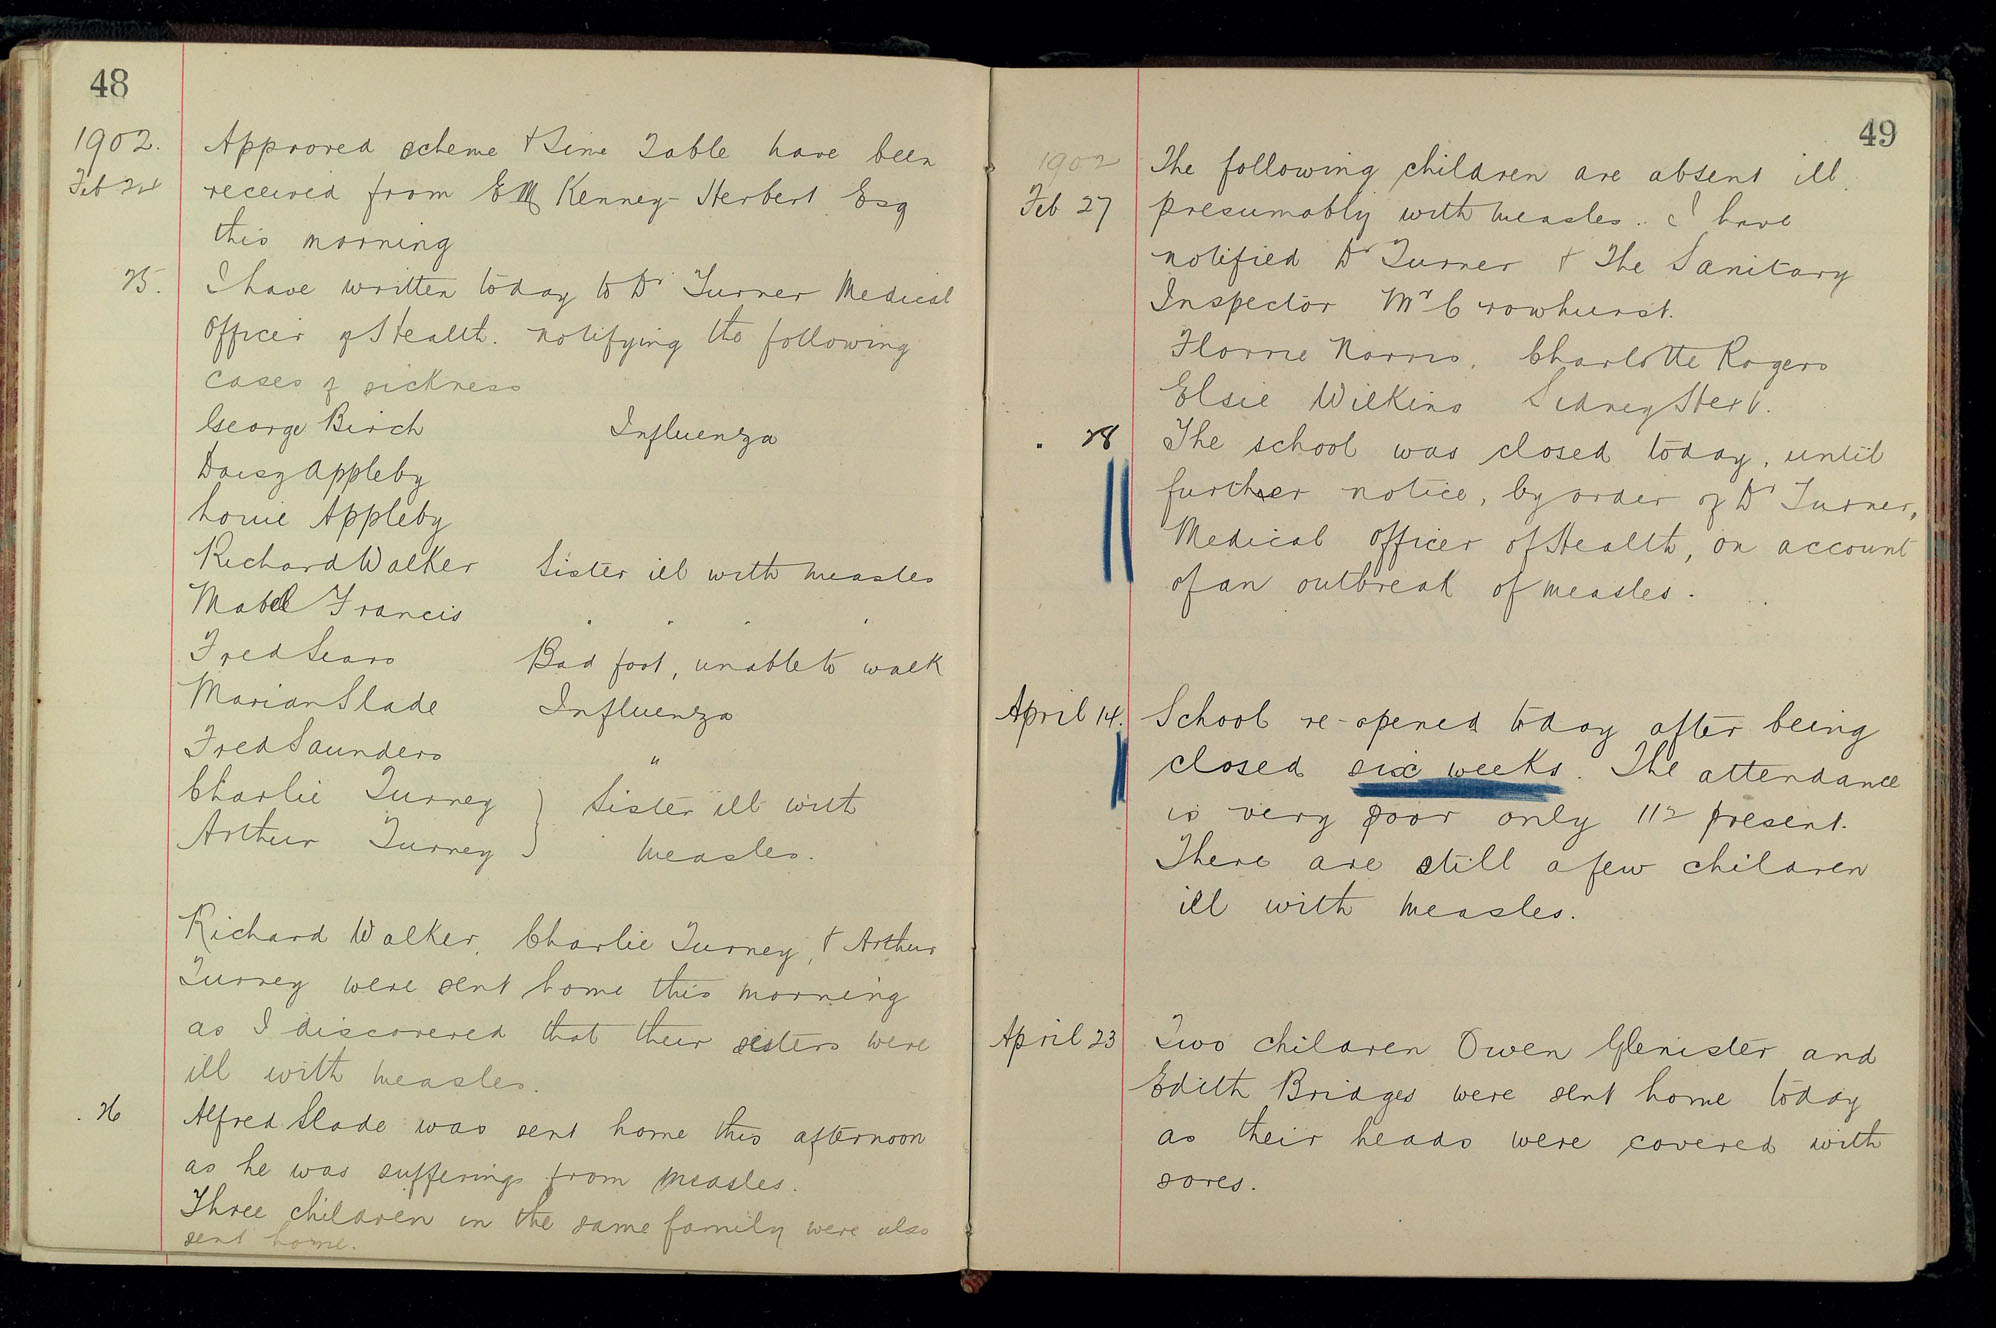 48
1902. Approved scheme & Time Table have been
Feb 24 received from E M Kenney-Herbert Esq
this morning
25. I have written today to Dr Turner Medical
Officer of Health. notifying the following
cases of sickness
George Birch Influenza
Daisy Appleby
Louie Appleby
Richard Walker Sister ill with measles
Mabel Francis " " " "
Fred Sears Bad foot, unable to walk
Marian Slade Influenza
Fred Saunders "
Charlie Turney } Sister ill with
Arthur Turney } measles.
Richard Walker, Charlie Turney, & Arthur
Turney were sent home this morning
as I discovered that their sisters were
ill with measles.
. 26 Alfred Slade was sent home this afternoon
as he was suffering from measles.
Three children in the same family were also
sent home.
49
1902 The following children are absent ill,
Feb 27 presumably with measles. I have
notified Dr Turner & The Sanitary
Inspector Mr Crowhurst.
Florrie Norris, Charlotte Rogers
Elsie Wilkins Sidney
. 28 The school was closed today, until
further notice, by order of Dr Turner,
Medical Officer of Health, on account
of an outbreak of measles.
April 14. School re-opened today after being
closed six weeks. The attendance
is very poor only 112 present.
There are still a few children
ill with measles.
April 23 Two children Owen Glenister and
Edith Bridges were sent home today
as their heads were covered with
sores.